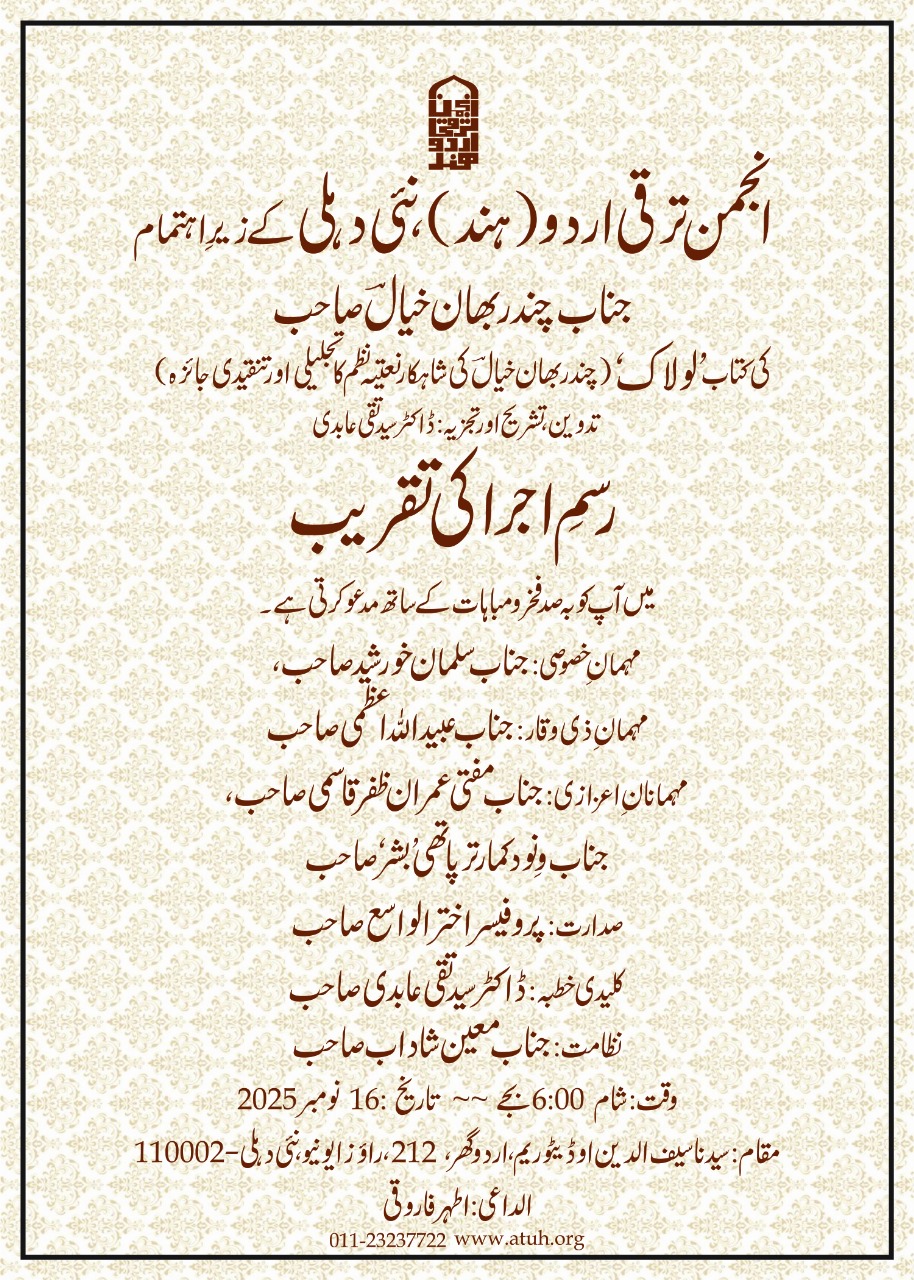 انجمن ترقی اردو ہند
انجمن ترقی اردو (ہند)، نئی دہلی کے زیرِ اہتمام
جناب چندر بھان خیالؔ صاحب
کی کتاب ’لولاک‘ (چندر بھان خیالؔ کی شاہکار نعتیہ نظم کا تجلیلی اور تنقیدی جائزہ)
تدوین، تشریح اور تجزیہ: ڈاکٹر سید تقی عابدی
رسمِ اجرا کی تقریب
میں آپ کو بہ صد فخر و مباہات کے ساتھ مدعو کرتی ہے۔
مہمانِ خصوصی: جناب سلمان خورشید صاحب،
مہمانِ ذی وقار: جناب عبیداللہ اعظمی صاحب
مہمانانِ اعزازی: جناب مفتی عمران ظفر قاسمی صاحب،
جناب وِنود کمار ترپاٹھی ’بشر‘ صاحب
صدارت: پروفیسر اختر الواسع صاحب
کلیدی خطبہ: ڈاکٹر سید تقی عابدی صاحب
نظامت: جناب معین شاداب صاحب
وقت: شام 6:00 بجے ~~ تاریخ: 16 نومبر 2025
مقام: سیدنا سیف الدین اوڈیٹوریم، اردو گھر، 212، راؤز ایونیو، نئی دہلی–110002
الداعی: اطہر فاروقی
011-23237722 www.atuh.org